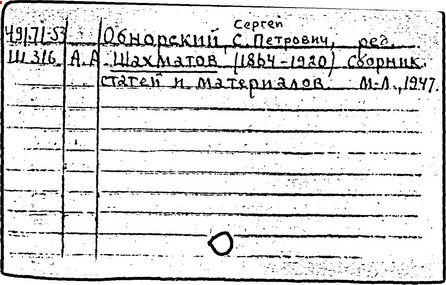 Сергей
491.71-53 Обнорский, С. Петрович, ред.
Ш316 А.А. Шахматов (1864-1920) Сборник
статей и материалов. М-Л., 1947.